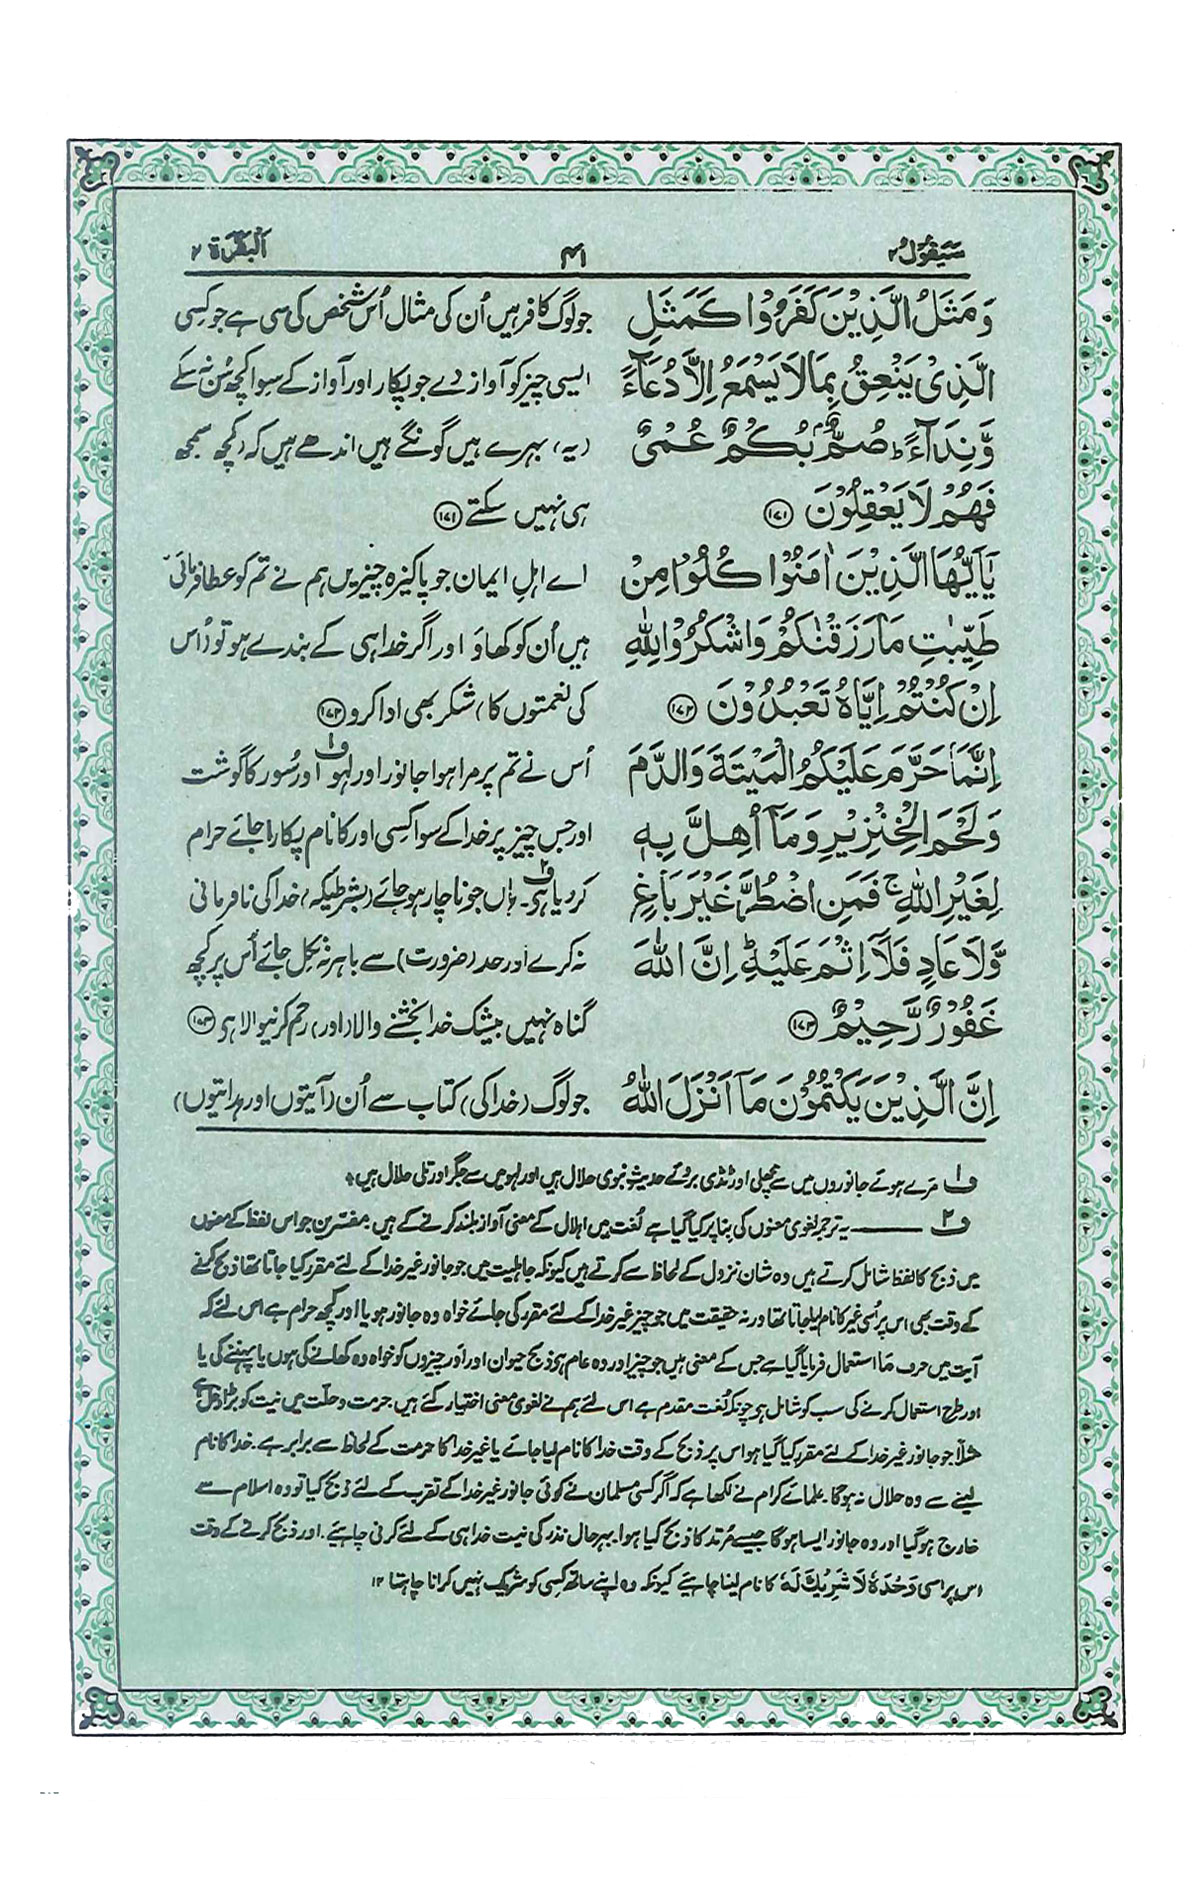 سَيَقُوۡلُ ۲ ۴۱ اَلۡبَقَرَة ۲
وَمَثَلُ الَّذِيۡنَ كَفَرُوۡا كَمَثَلِ
الَّذِىۡ يَنۡعِقُ بِمَا لَا يَسۡمَعُ اِلَّا دُعَآءً
وَّنِدَآءً ؕ صُمٌّۢ بُكۡمٌ عُمۡىٌ
فَهُمۡ لَا يَعۡقِلُوۡنَ ۝۱۷۱
يٰٓاَيُّهَا الَّذِيۡنَ اٰمَنُوۡا كُلُوۡا مِنۡ
طَيِّبٰتِ مَا رَزَقۡنٰكُمۡ وَاشۡكُرُوۡا لِلّٰهِ
اِنۡ كُنۡتُمۡ اِيَّاهُ تَعۡبُدُوۡنَ ۝۱۷۲
اِنَّمَا حَرَّمَ عَلَيۡکُمُ الۡمَيۡتَةَ وَالدَّمَ
وَلَحۡمَ الۡخِنۡزِيۡرِ وَمَآ اُهِلَّ بِهٖ
لِغَيۡرِ اللّٰهِ ۚ فَمَنِ اضۡطُرَّ غَيۡرَ بَاغٍ
وَّلَا عَادٍ فَلَاۤ اِثۡمَ عَلَيۡهِ ؕ اِنَّ اللّٰهَ
غَفُوۡرٌ رَّحِيۡمٌ ۝۱۷۳
اِنَّ الَّذِيۡنَ يَكۡتُمُوۡنَ مَآ اَنۡزَلَ اللّٰهُ
جو لوگ کافر ہیں اُن کی مثال اُس شخص کی سی ہے جو کسی
ایسی چیز کو آواز دے جو پکار اور آواز کے سوا کچھ سُن نہ سکے
(یہ) بہرے ہیں گونگے ہیں اندھے ہیں کہ (کچھ) سمجھ
ہی نہیں سکتے ۝۱۷۱
اے اہلِ ایمان جو پاکیزہ چیزیں ہم نے تم کو عطا فرمائی
ہیں اُن کو کھاؤ اور اگر خدا ہی کے بندے ہو تو (اُس
کی نعمتوں کا) شکر بھی ادا کرو ۝۱۷۲
اُس نے تم پر مرا ہوا جانور اور لہو ف۱ اور سُور کا گوشت
اور جس چیز پر خدا کے سوا کسی اور کا نام پکارا جائے حرام
کر دیا ہی ف۲۔ ہاں جو ناچار ہو جائے (بشرطیکہ) خدا کی نافرمانی
نہ کرے اور حد (ضرورت) سے باہر نہ نکل جائے اُس پر کچھ
گناہ نہیں بیشک خدا بخشنے والا (اور) رحم کرنیوالا ہی ۝۱۷۳
جو لوگ (خدا کی) کتاب سے اُن (آیتوں اور ہدایتوں)
ف۱ مَرے ہوئے جانوروں میں سے مچھلی اور ٹڈی بروئے حدیث نبوی حلال ہیں اور لہو میں سے جگر اور تلی حلال ہیں ٭
ف۲ یہ ترجمہ لغوی معنوں کی بنا پر کیا گیا ہے لُغت میں اہلال کے معنی آواز بلند کرنے کے ہیں۔ مفسّرین جو اس لفظ کے معنوں
میں ذبح کا لفظ شامل کرتے ہیں وہ شان نزول کے لحاظ سے کرتے ہیں کیونکہ جاہلیت میں جو جانور غیر خدا کے لئے مقرر کیا جاتا تھا ذبح کرنے
کے وقت بھی اس پر اُسی غیر کا نام لیا جاتا تھا ورنہ حقیقت میں جو چیز غیر خدا کے لئے مقرر کی جائے خواہ وہ جانور ہو یا اور کچھ حرام ہے اس لئے کہ
آیت میں حرف مَا استعمال فرمایا گیا ہے جس کے معنی ہیں جو چیز اور وہ عام ہی ذبح حیوان اور اَور چیزوں کو خواہ وہ کھانے کی ہوں یا پہننے کی یا
اور طرح استعمال کرنے کی سب کو شامل ہو چونکہ لُغت مقدم ہے اس لئے ہم نے لغوی معنی اختیار کئے ہیں۔ حرمت و حلّت میں نیت کو بڑا دخل ہے
مثلًا جو جانور غیر خدا کے لئے مقرر کیا گیا ہو اس پر ذبح کے وقت خدا کا نام لیا جائے یا غیر خدا کا حرمت کے لحاظ سے برابر ہے۔ خدا کا نام
لینے سے وہ حلال نہ ہوگا۔ علمائے کرام نے لکھا ہے کہ اگر کسی مسلمان نے کوئی جانور غیر خدا کے تقرب کے لئے ذبح کیا تو وہ اسلام سے
خارج ہو گیا اور وہ جانور ایسا ہوگا جیسے مُرتد کا ذبح کیا ہوا۔ بہرحال نذر کی نیت خدا ہی کے لئے کرنی چاہیے۔ اور ذبح کرنے کے وقت
اس پر اسی وَحْدَہٗ لَا شَرِیْكَ لَهٗ کا نام لینا چاہیے کیونکہ وہ اپنے ساتھ کسی کو شریک نہیں کرانا چاہتا ۱۲